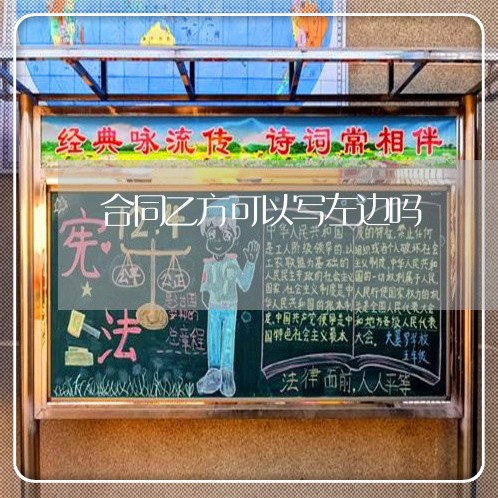 经典咏流传 诗词常相伴
合同乙方可以写左边吗
宪
法
公平
公正
总章程
中华人民共和国
是工人阶级领导的,以
工农联盟为基础的
人民民主专政的社会主义
国家,社会主义制度是中
华人民共和国的根本制
度,中国共产党领导是中
国特色社会主义最本
质的特征,禁止任何
组织或者个人破坏社会
主义制度,中华人民共和
国的一切权利属于人民,
人民行使国家权力的机
关是全国人民代表大会
和地方各级人民代表
大会。
五年级
法律面前,人人平等